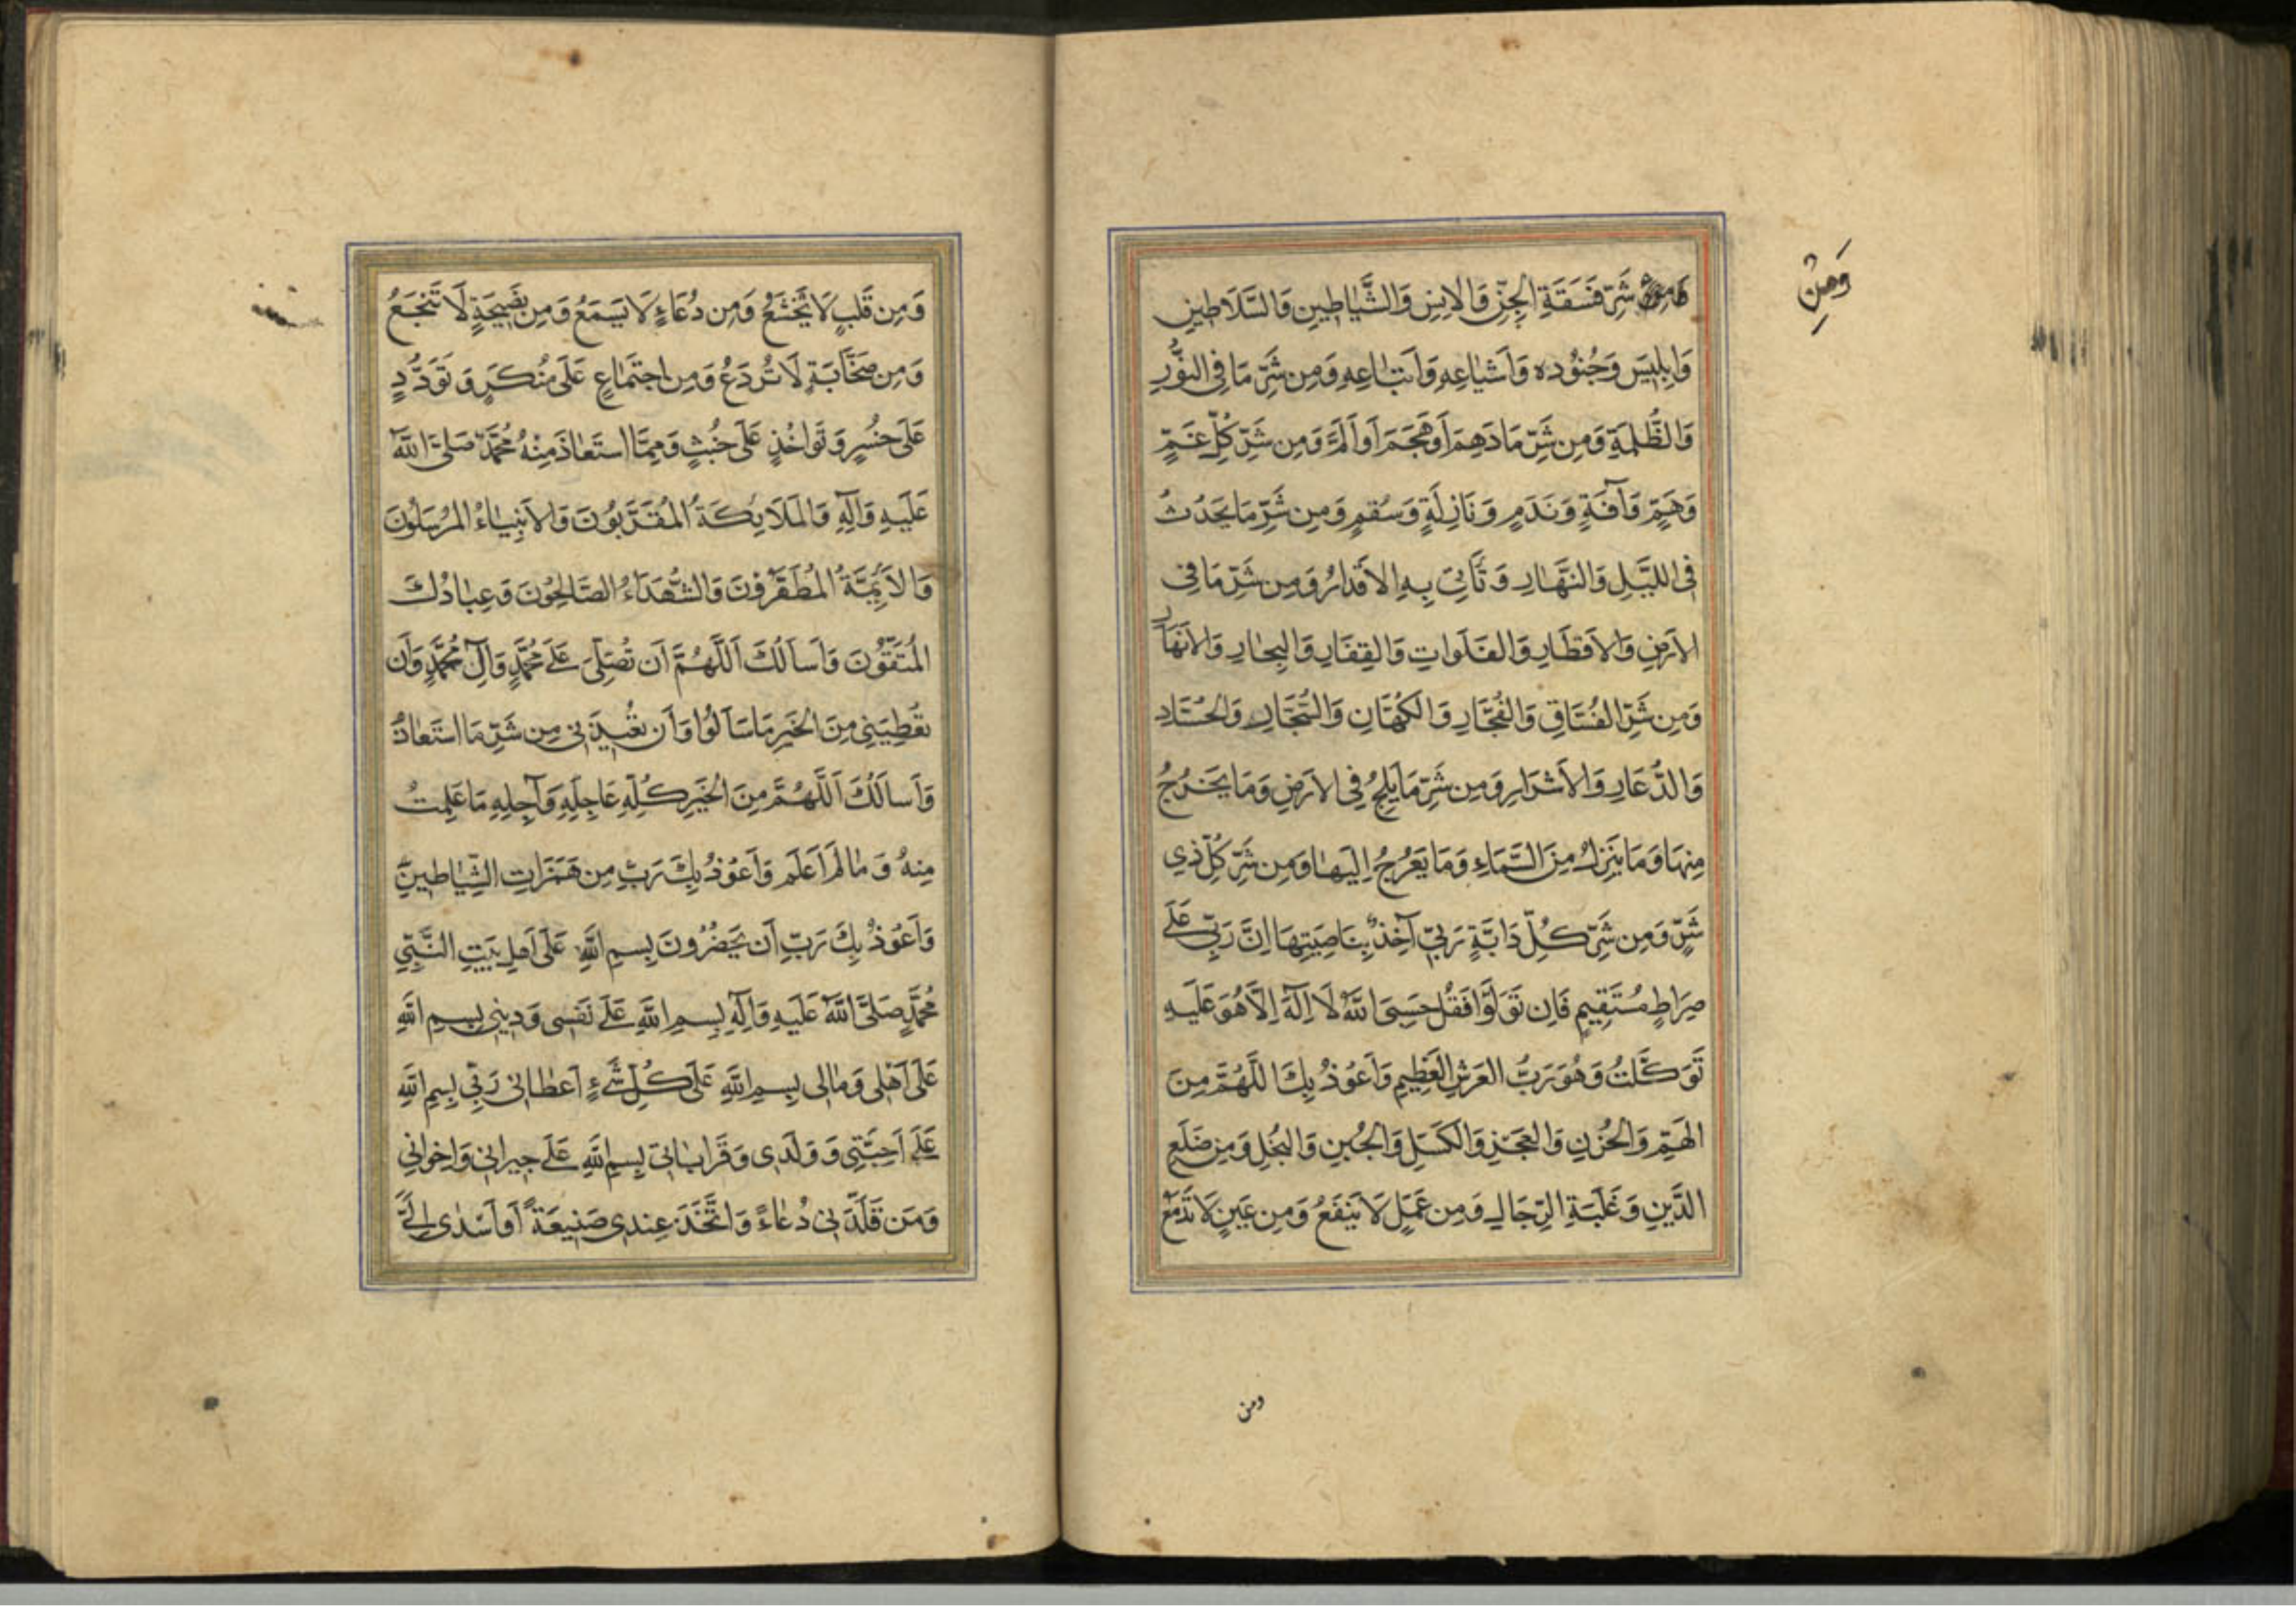 وَمِنْ
شَرِّ فَسَقَةِ الجِنِّ وَالاِنسِ وَالشَّيَاطِينِ وَالسَّلَاطِينِ
وَاِبلِيسَ وَجُنُودِه وَاَشيَاعِهِ وَاَتبَاعِهِ وَمِن شَرِّ مَا فِى النُّورِ
وَالظُّلمَةِ وَمِن شَرِّ مَا دَهِمَ اَو هَجَمَ اَو اَلَمَّ وَمِن شَرِّ كُلِّ غَمٍّ
وَهَمٍّ وَآفَةٍ وَنَدَمٍ وَنَازِلَةٍ وَسُقمٍ وَمِن شَرِّ مَا يَحدُثُ
فِى اللَّيلِ وَالنَّهَارِ وَتَأتِى بِهِ الاَقدَارُ وَمِن شَرِّ مَا فِى
الاَرضِ وَالاَقطَارِ وَالفَلَوَاتِ وَالقِفَارِ وَالبِحَارِ وَالاَنهَارِ
وَمِن شَرِّ الفُسَّاقِ وَالفُجَّارِ وَالكُهَّانِ وَالسُّحَّارِ وَالحُسَّادِ
وَالذُّعَّارِ وَالاَشرَارِ وَمِن شَرِّ مَا يَلِجُ فِى الاَرضِ وَمَا يَخرُجُ
مِنهَا وَمَا يَنزِلُ مِنَ السَّمَاءِ وَمَا يَعرُجُ اِلَيهَا وَمِن شَرِّ كُلِّ ذِي
شَرٍّ وَمِن شَرِّ كُلِّ دَابَّةٍ رَبِّى آخِذٌ بِنَاصِيَتِهَا اِنَّ رَبِّى عَلَى
صِرَاطٍ مُستَقِيمٍ فَاِن تَوَلَّوا فَقُل حَسبِىَ اللَّهُ لَا اِلَهَ اِلَّا هُوَ عَلَيهِ
تَوَكَّلتُ وَهُوَ رَبُّ العَرشِ العَظِيمِ وَاَعُوذُ بِكَ اللَّهُمَّ مِنَ
الهَمِّ وَالحُزنِ وَالعَجزِ وَالكَسَلِ وَالجُبنِ وَالبُخلِ وَمِن ضَلَعِ
الدَّينِ وَغَلَبَةِ الرِّجَالِ وَمِن عَمَلٍ لَا يَنفَعُ وَمِن عَينٍ لَا تَدمَعُ
ومن
وَمِن قَلبٍ لَا يَخشَعُ وَمِن دُعَاءٍ لَا يُسمَعُ وَمِن نَصِيحَةٍ لَا تَنجَعُ
وَمِن صَحَابَةٍ لَا تُردَعُ وَمِن اجتِمَاعٍ عَلَى مُنكَرٍ وَتَوَدُّدٍ
عَلَى خُسرٍ وَتَوَاخُذٍ عَلَى خُبثٍ وَمِمَّا استَعَاذَ مِنْهُ مُحَمَّدٌ صَلَّى اللَّهُ
عَلَيهِ وَآلِهِ وَالمَلَايِكَةُ المُقَرَّبُونَ وَالاَنبِيَاءُ المُرسَلُونَ
وَالاَئِمَّةُ المُطَهَّرُونَ وَالشُّهَدَاءُ الصَّالِحُونَ وَعِبَادُكَ
المُتَّقُونَ وَاَساَلُكَ اَللَّهُمَّ اَن تُصَلِّىَ عَلَى مُحَمَّدٍ وَآلِ مُحَمَّدٍ وَاَن
تُعطِيَنِى مِنَ الخَيرِ مَا سَاَلُوا وَاَن تُعِيذَنِى مِن شَرِّ مَا استَعَاذُ
وَاَساَلُكَ اَللَّهُمَّ مِنَ الخَيرِ كُلِّهِ عَاجِلِهِ وَآجِلِهِ مَا عَلِمتُ
مِنهُ وَمَا لَم اَعلَم وَاَعُوذُ بِكَ رَبِّ مِن هَمَزَاتِ الشَّيَاطِينِ
وَاَعُوذُ بِكَ رَبِّ اَن يَحضُرُونَ بِسمِ اللَّهِ عَلَى اَهلِ بَيتِ النَّبِيِّ
مُحَمَّدٍ صَلَّى اللَّهُ عَلَيهِ وَآلِهِ بِسمِ اللَّهِ عَلَى نَفسِى وَدِينِى بِسمِ اللَّهِ
عَلَى اَهلِى وَمَالِى بِسمِ اللَّهِ عَلَى كُلِّ شَىءٍ اَعطَانِى رَبِّى بِسمِ اللَّهِ
عَلَى اَحِبَّتِى وَوَلَدِى وَقَرَابَاتِى بِسمِ اللَّهِ عَلَى جِيرَانِى وَاِخوَانِى
وَمَن قَلَّدَنِى دُعَاءً وَاتَّخَذَ عِندِى صَنِيعَةً اَو اَسدَى اِلَىَّ